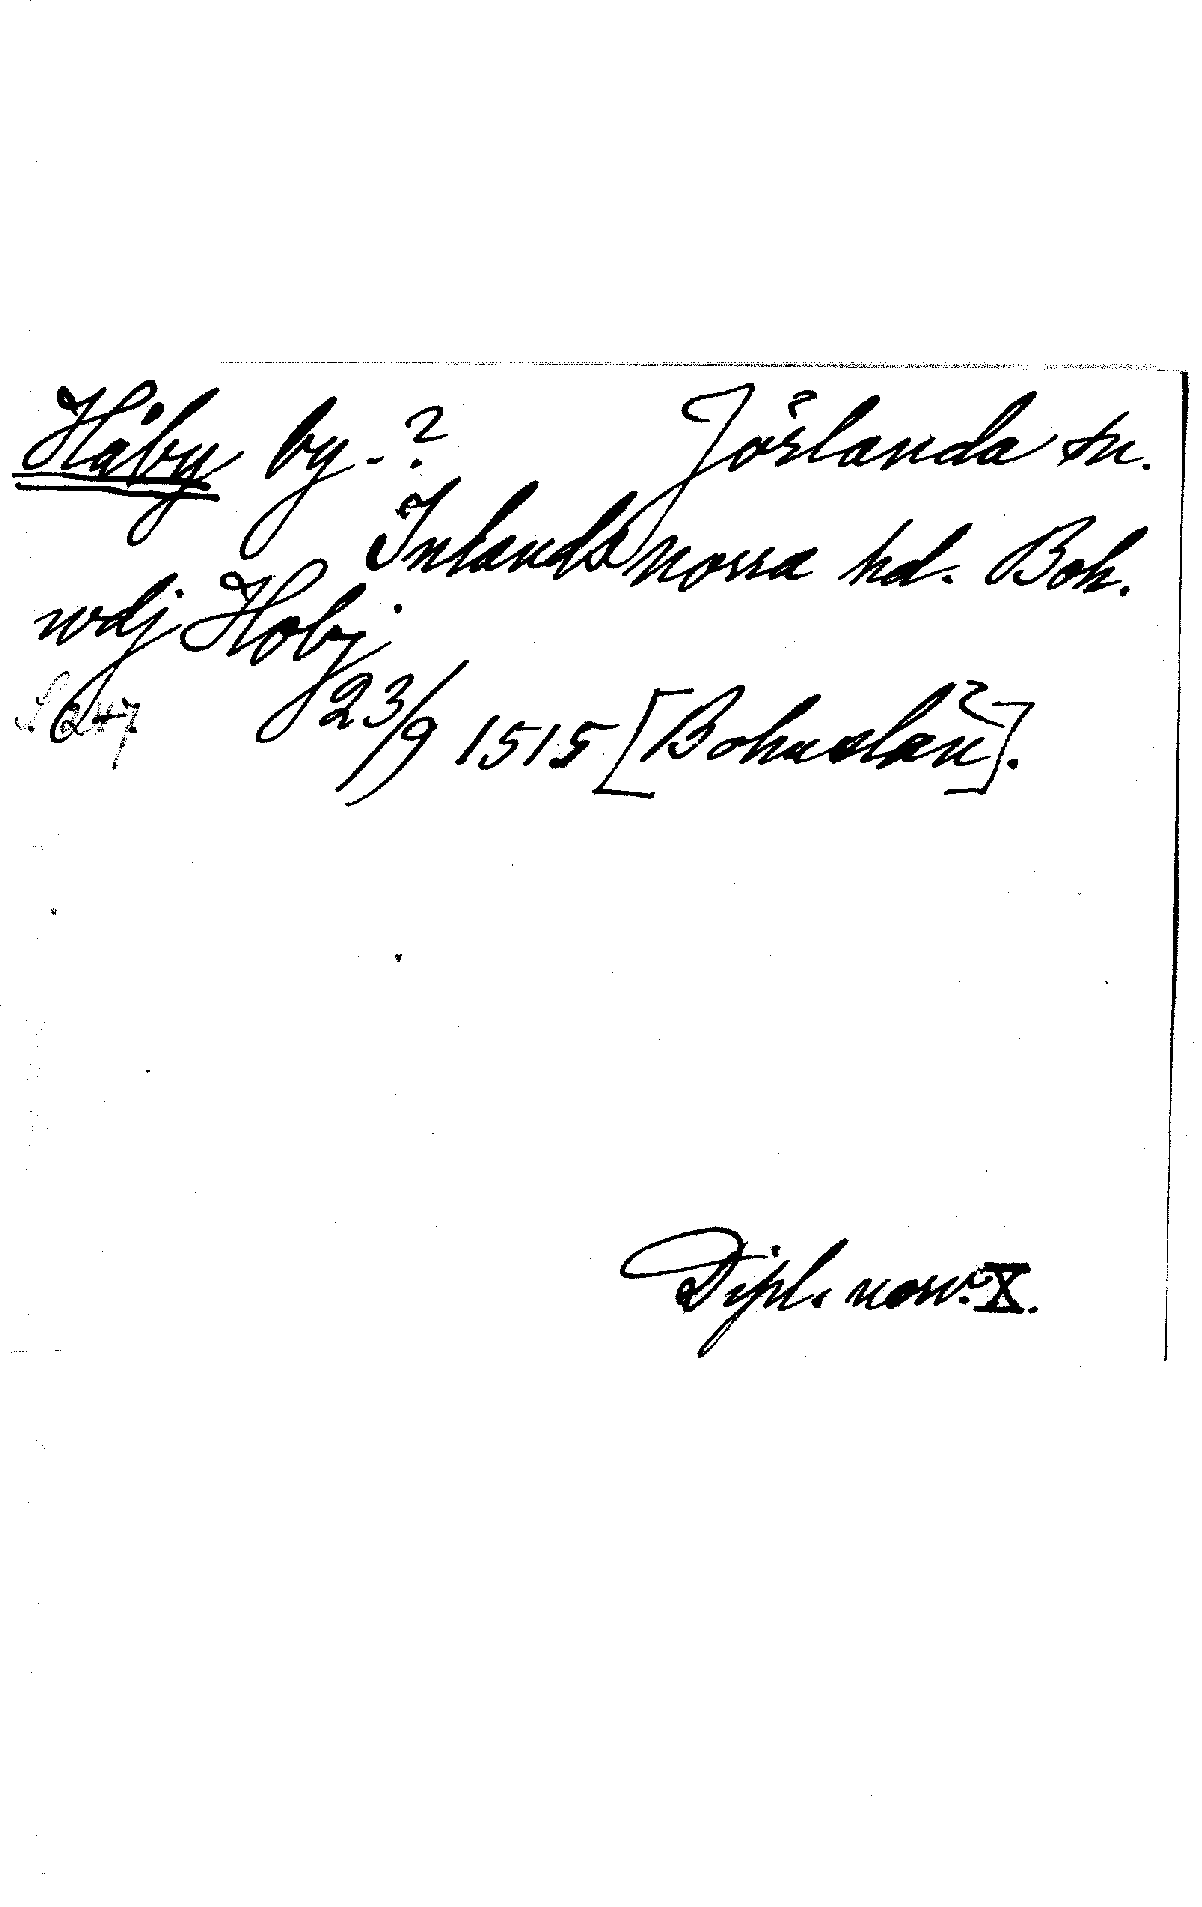 Håby by.? Jörlanda sn.
Inlands norra hd. Boh.
wdj Hobj
S 247 23/9 1515 [Bohuslän].
Dipl. norv. X.